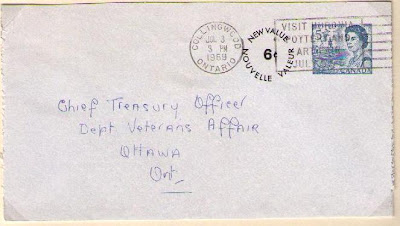 COLLINGWOOD
JUL 3
3 PM
1969
ONTARIO
NEW VALUE
6¢
NOUVELLE VALEUR
VISIT HURONIA
POTTERY AND
ART
JUL
5
CANADA
Chief Treasury Officer
Dept Veterans Affair
Ottawa
Ont.